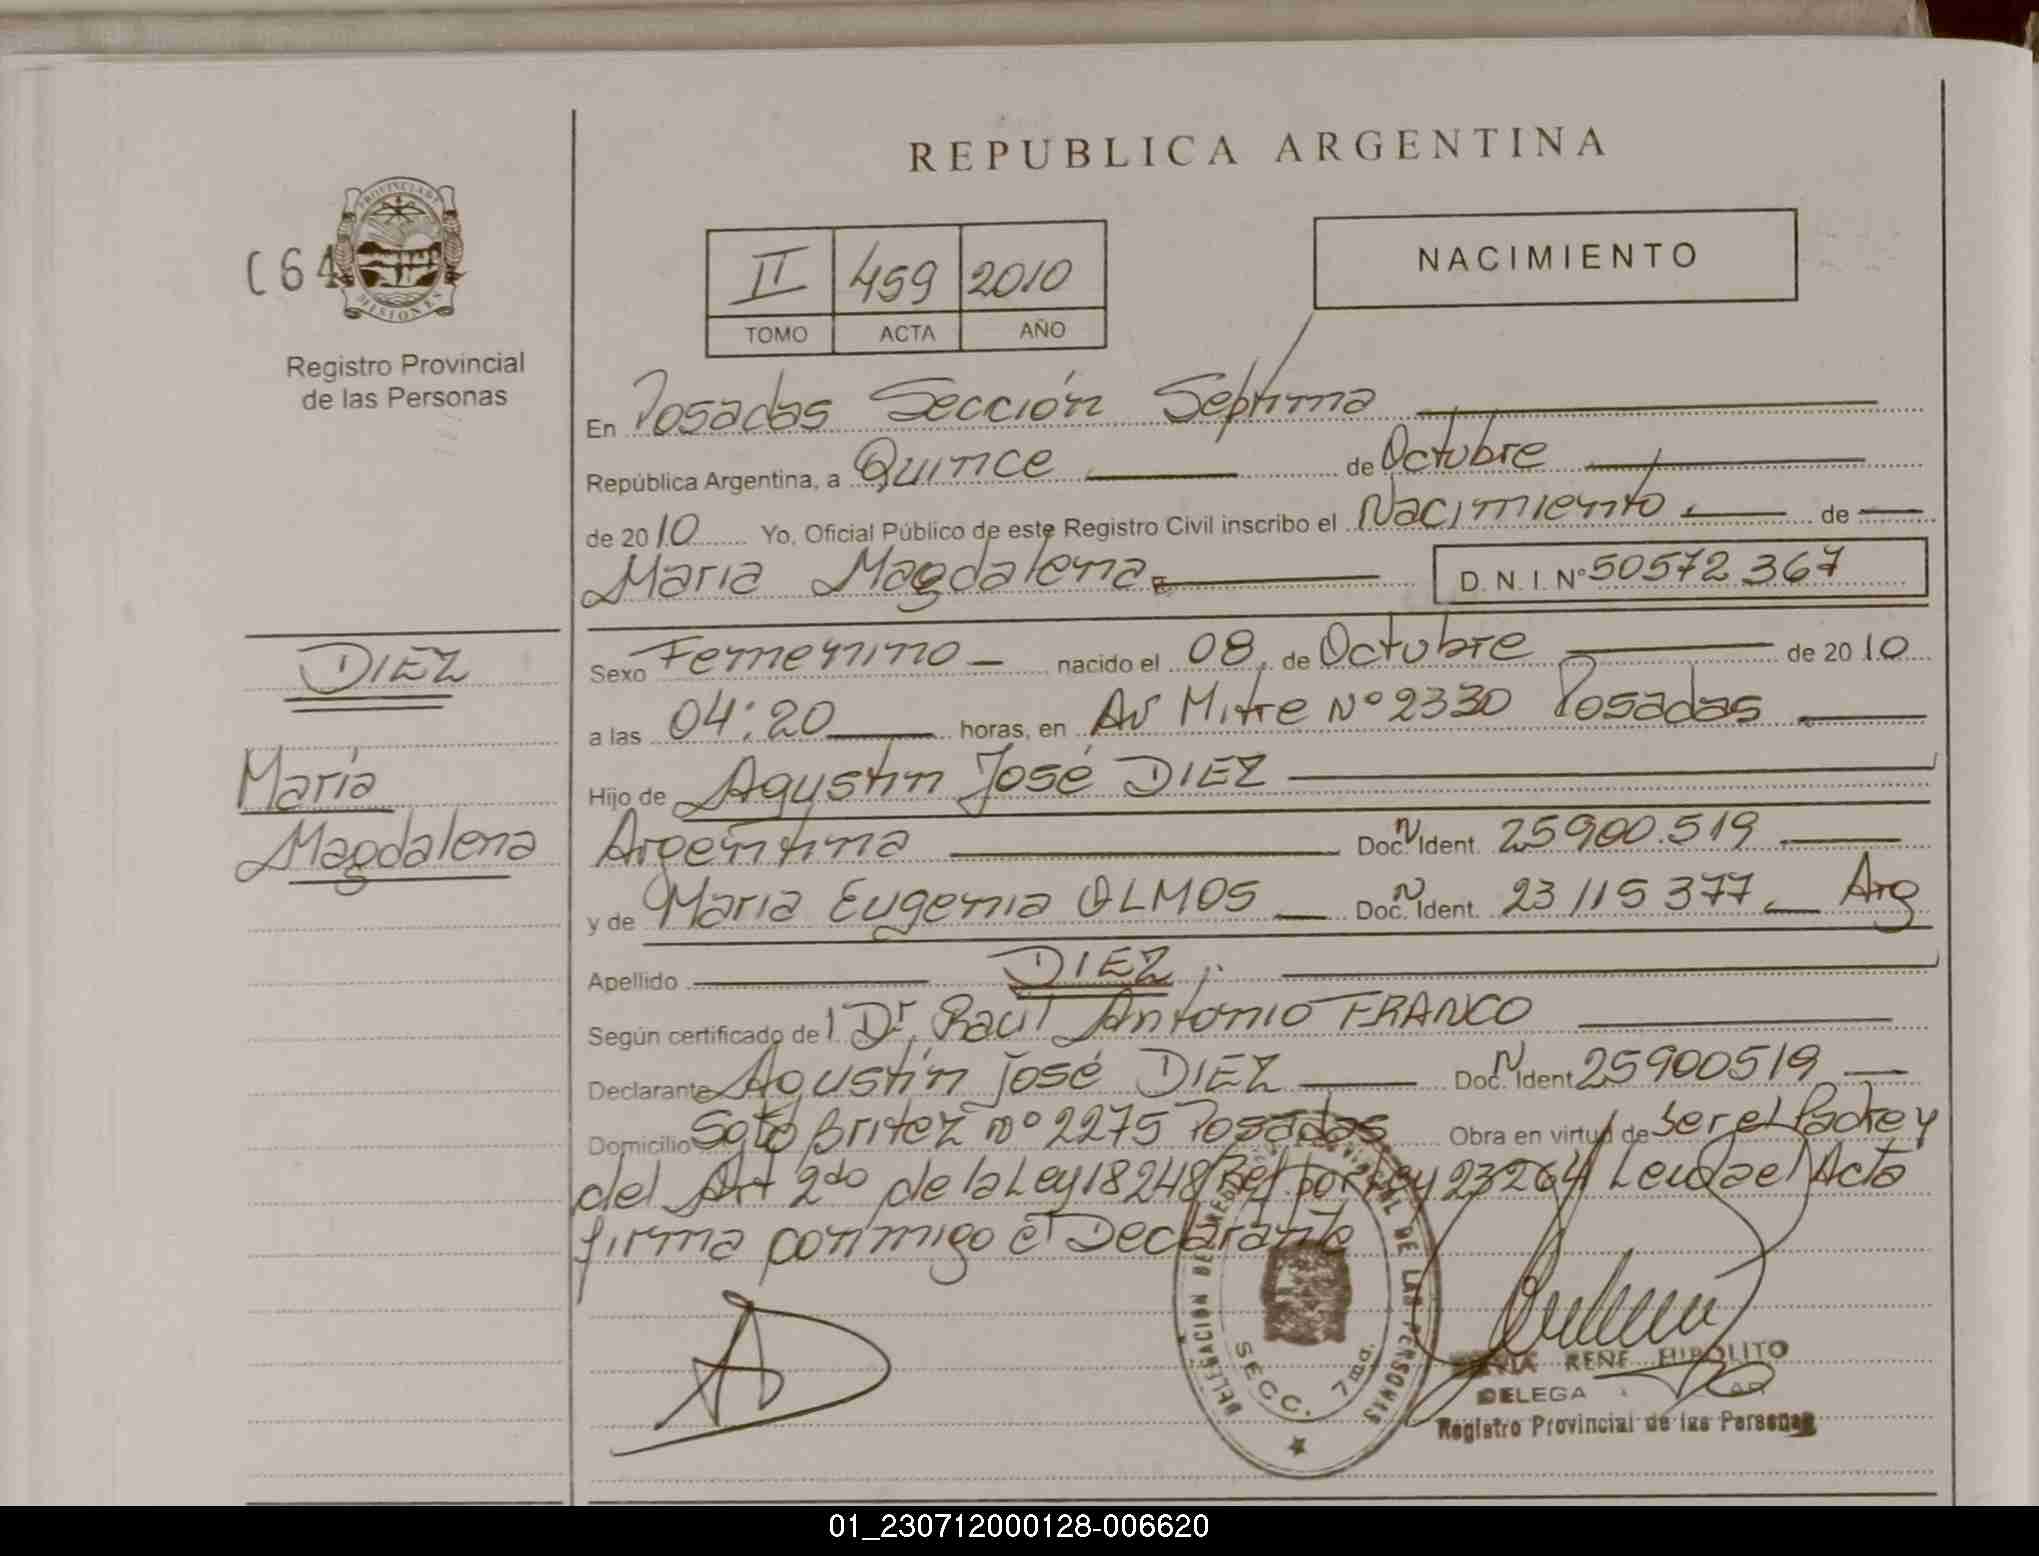 REPUBLICA ARGENTINA
PROVINCIA DE
MISIONES
C64
Registro Provincial
de las Personas
NACIMIENTO
II 459 2010
TOMO ACTA AÑO
En Posadas Sección Séptima
República Argentina, a Quince de Octubre
de 2010 Yo, Oficial Público de este Registro Civil inscribo el Nacimiento de
Maria Magdalena D. N. I. N° 50572 367
DIEZ
María
Magdalena
Sexo Femenino nacido el 08 de Octubre de 2010
a las 04:20 horas, en Av Mitre Nº 2330 Posadas
Hijo de Agustín José DIEZ
Argentina Doc. N Ident. 25900.519
y de Maria Eugenia OLMOS Doc. N Ident. 23 115 377 Arg
Apellido DIEZ
Según certificado del Dr. Raúl Antonio FRANCO
Declarante Agustín José DIEZ Doc. N Ident 25900519
Domicilio Soto Britez nº 2275 Posadas Obra en virtud de Ser el Padre y
del Art 2do de la Ley 18248 Ref. por Ley 23264 Leida el Acta
firma conmigo el Declarante
AD
DELEGACIÓN DE DE LAS PERSONAS
SECC. 7ma.
RENE HIPOLITO
DELEGA
Registro Provincial de las Personas
01_230712000128-006620